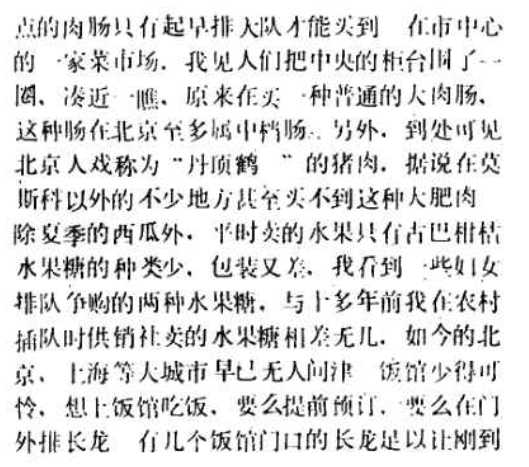 点的肉肠只有起早排大队才能买到 在市中心
的一家菜市场，我见人们把中央的柜台围了一
圈，凑近一瞧，原来在买一种普通的大肉肠，
这种肠在北京至多属中档肠。另外，到处可见
北京人戏称为“丹顶鹤 ”的猪肉，据说在莫
斯科以外的不少地方甚至买不到这种大肥肉
除夏季的西瓜外，平时卖的水果只有古巴柑桔
水果糖的种类少，包装又差，我看到一些妇女
排队争购的两种水果糖，与十多年前我在农村
插队时供销社卖的水果糖相差无几，如今的北
京、上海等大城市早已无人问津 饭馆少得可
怜，想上饭馆吃饭，要么提前预订，要么在门
外排长龙 有几个饭馆门口的长龙足以让刚到